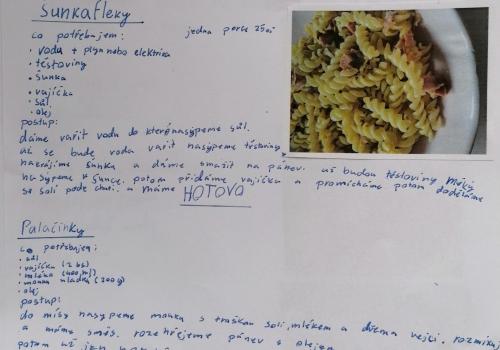 Šunkafleky
co potřebujem:
jedna porce 25cá
• vodu + plyn nebo elektrika
• těstoviny
• šunka
• vajíčka
• sůl
• olej
postup:
dáme vařit vodu do které nasypeme sůl.
až se bude voda vařit nasypeme těstoviny,
nakrájíme šunku a dáme smažit na pánev. až budou těstoviny měký
nasypeme k šunce. potom přidáme vajíčka a promícháme potom doděláme
se solí podle chuti. a máme HOTOVO
Palačinky
co potřebujem:
• sůl
• vajíčka (2 ks)
• mléko (400 ml)
• mouka hladká (200g)
• olej
postup:
do mísy nasypeme mouku s troškou soli, mlékem a dvěma vejci. rozmíchá
a máme směs. rozehřejeme pánev s olejem
potom už jen